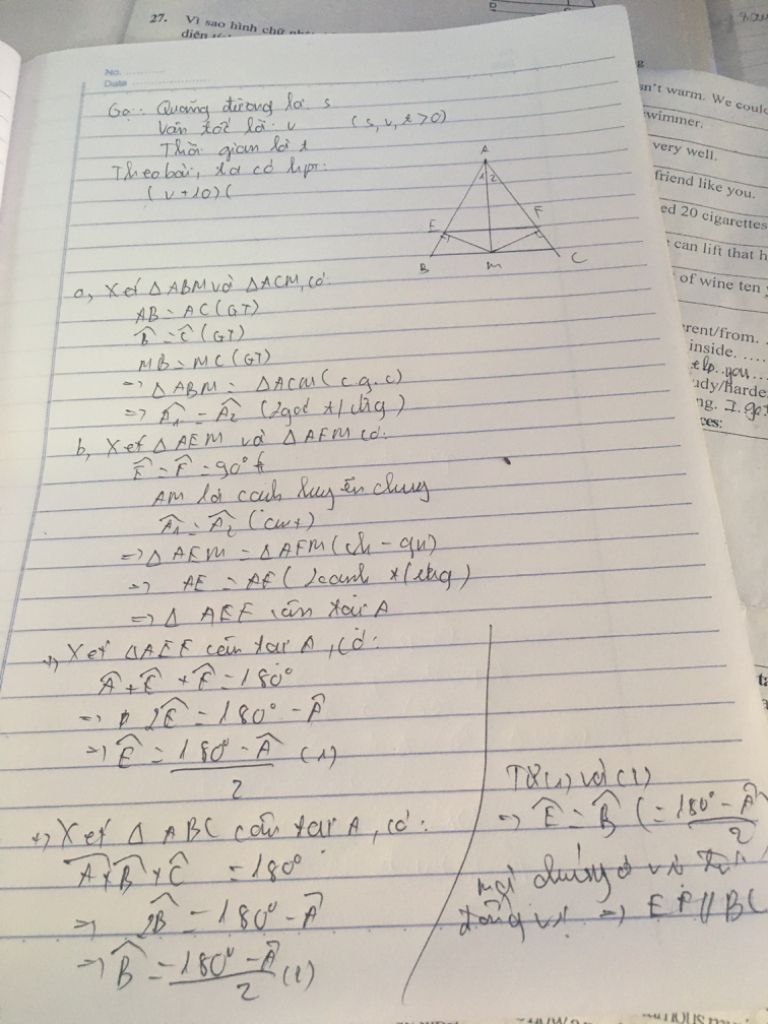 27. Vì sao hình chữ
diện
No.
Date
Gọi: Quãng đường là s
Vận tốc là: v (s, v, t > 0)
Thời gian là t
Theo bài, ta có hpt:
(v + 10)(
A
1 2
E F
B M C
a, Xét Δ ABM và Δ ACM, có:
AB = AC (GT)
B̂ = Ĉ (GT)
MB = MC (GT)
=> Δ ABM = Δ ACM (c.g.c)
=> Â1 = Â2 (2 góc t/ứng)
b, Xét Δ AEM và Δ AFM có:
Ê = F̂ = 90°
AM là cạnh huyền chung
Â1 = Â2 (cmt)
=> Δ AEM = Δ AFM (ch - gn)
=> AE = AF (2 cạnh t/ứng)
=> Δ AEF cân tại A
+, Xét Δ AEF cân tại A, có:
Â + Ê + F̂ = 180°
=> 2Ê = 180° - Â
=> Ê = 180° - Â / 2 (1)
+, Xét Δ ABC cân tại A, có:
Â + B̂ + Ĉ = 180°
=> 2B̂ = 180° - Â
=> B̂ = 180° - Â / 2 (2)
Từ (1) và (2)
=> Ê = B̂ (= 180° - Â / 2
mà chúng ở vị trí
đồng vị => EF // BC
n't warm. We could
wimmer.
very well.
friend like you.
ed 20 cigarettes
can lift that h
of wine ten
rent/from.
inside.
help you
udy/harde
ng. I go
ces: